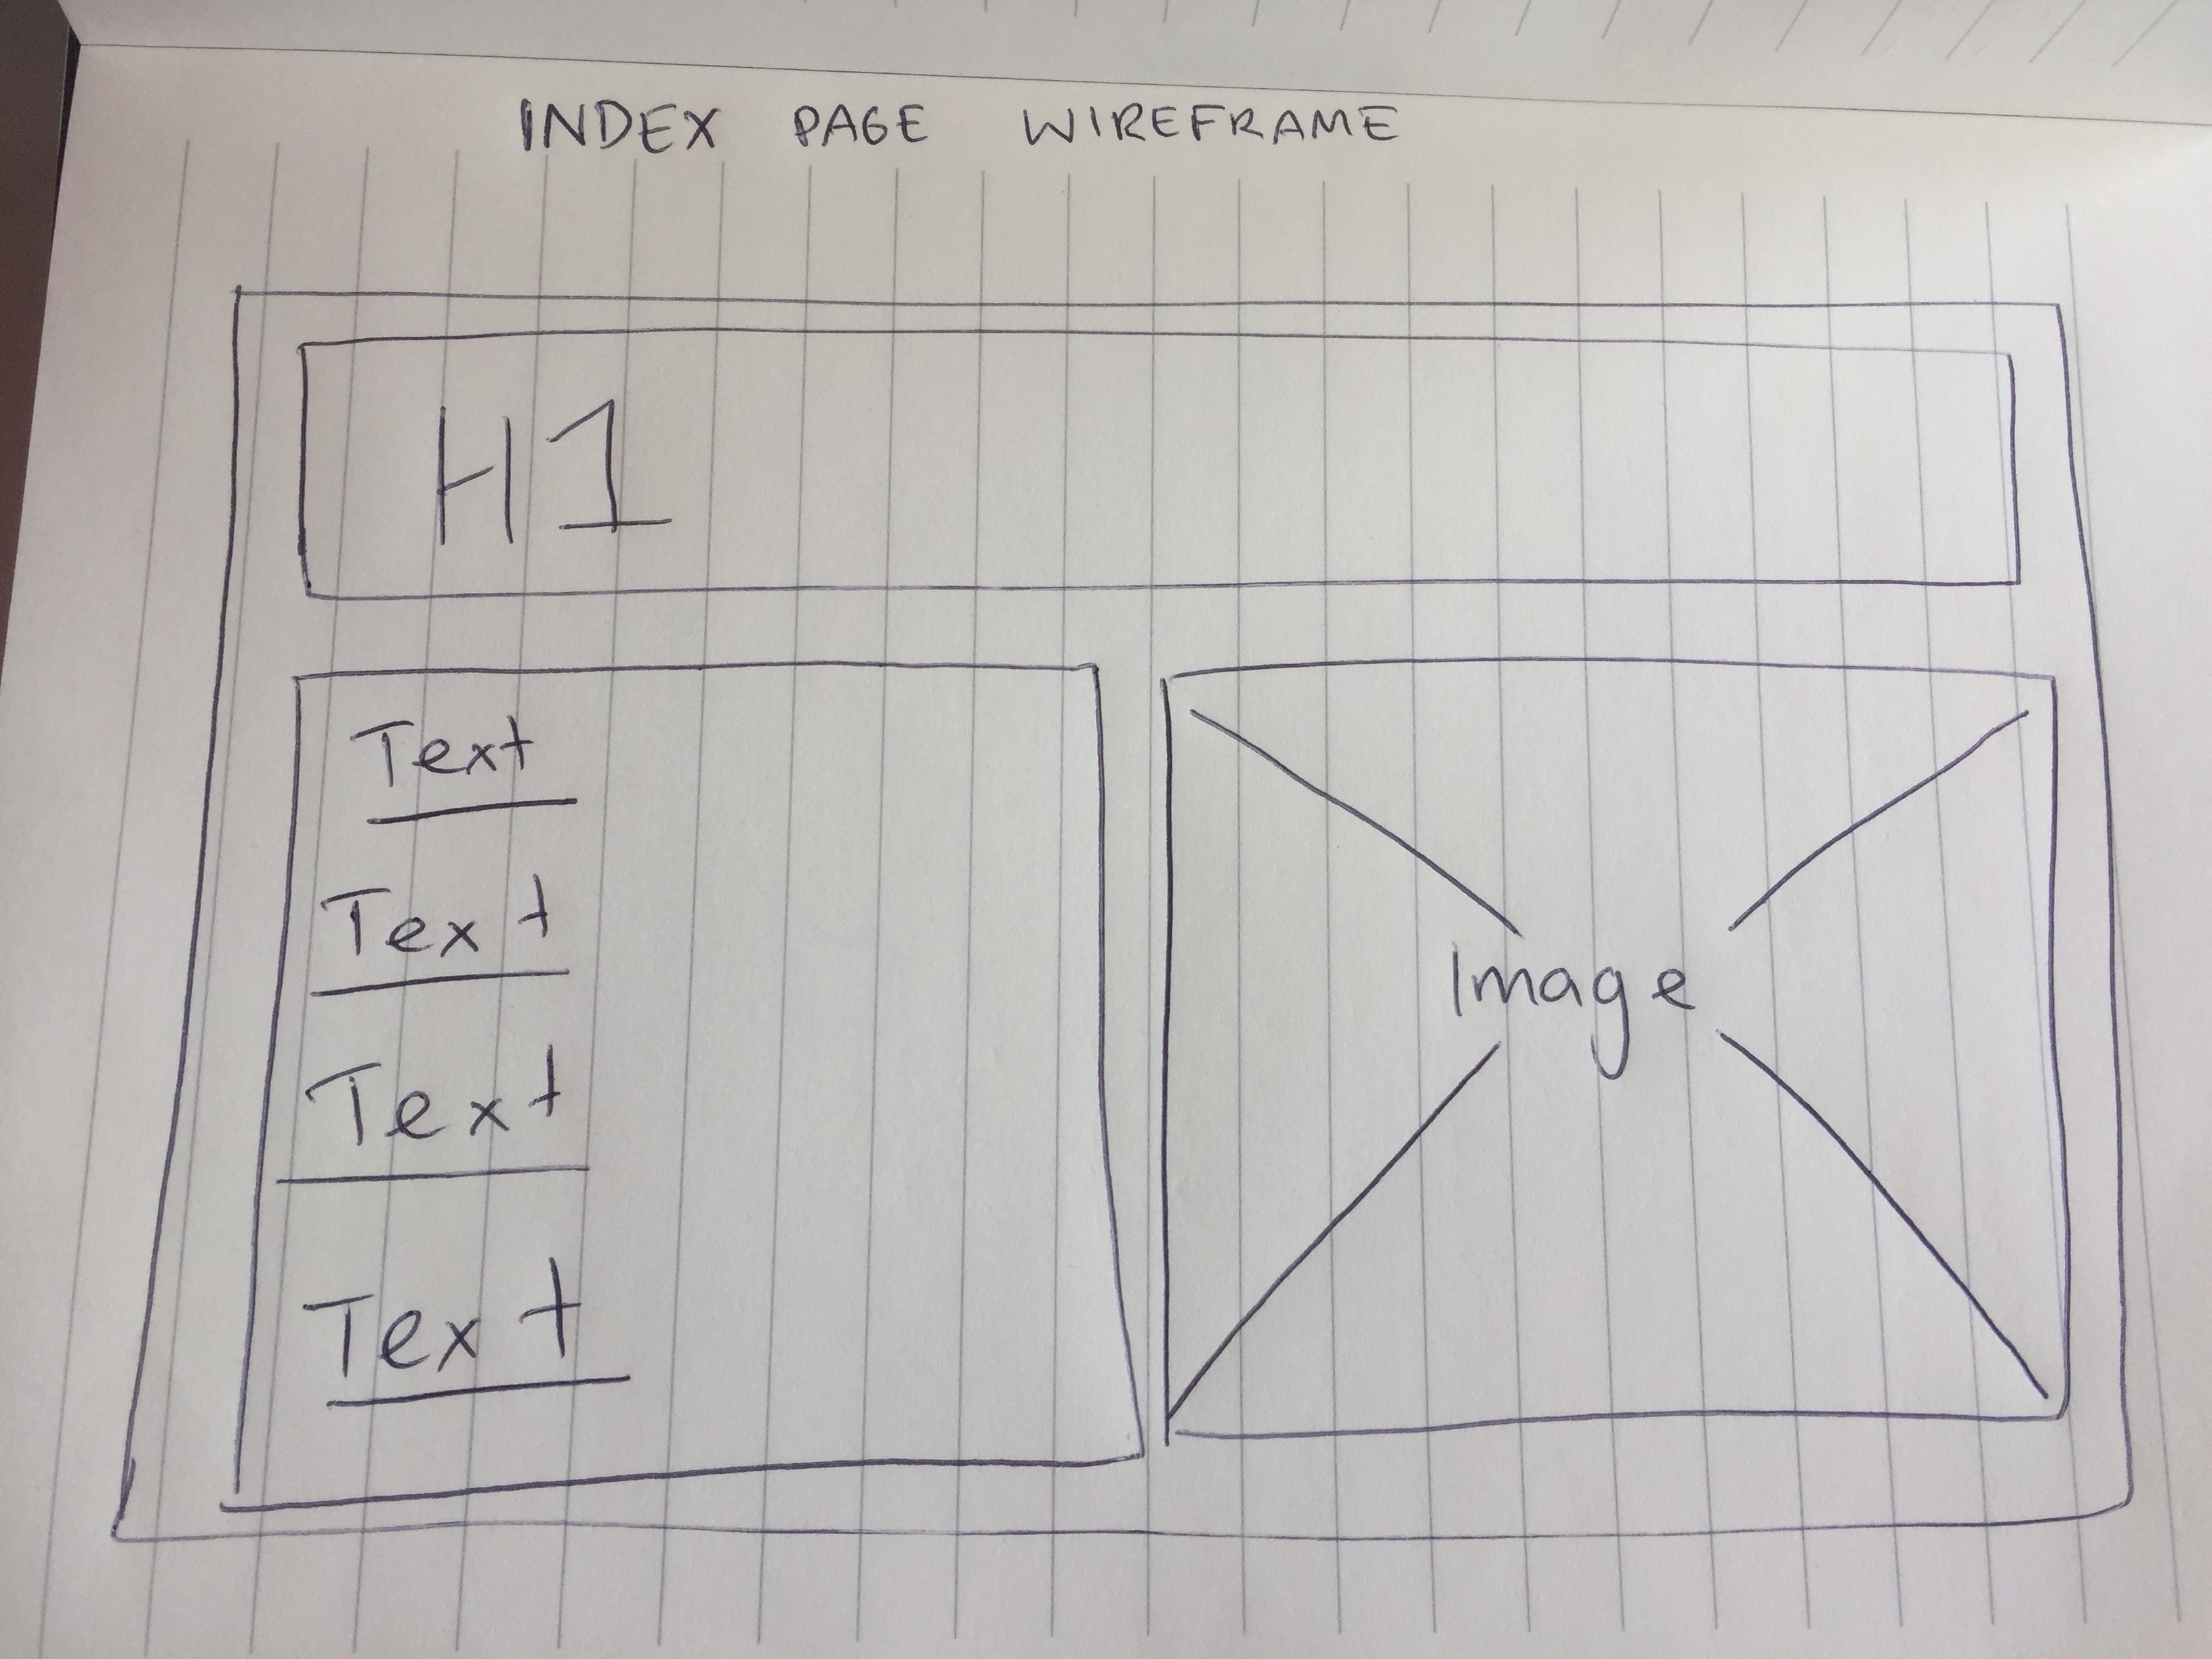 INDEX PAGE WIREFRAME
H1
Text
Text
Text
Text
Image